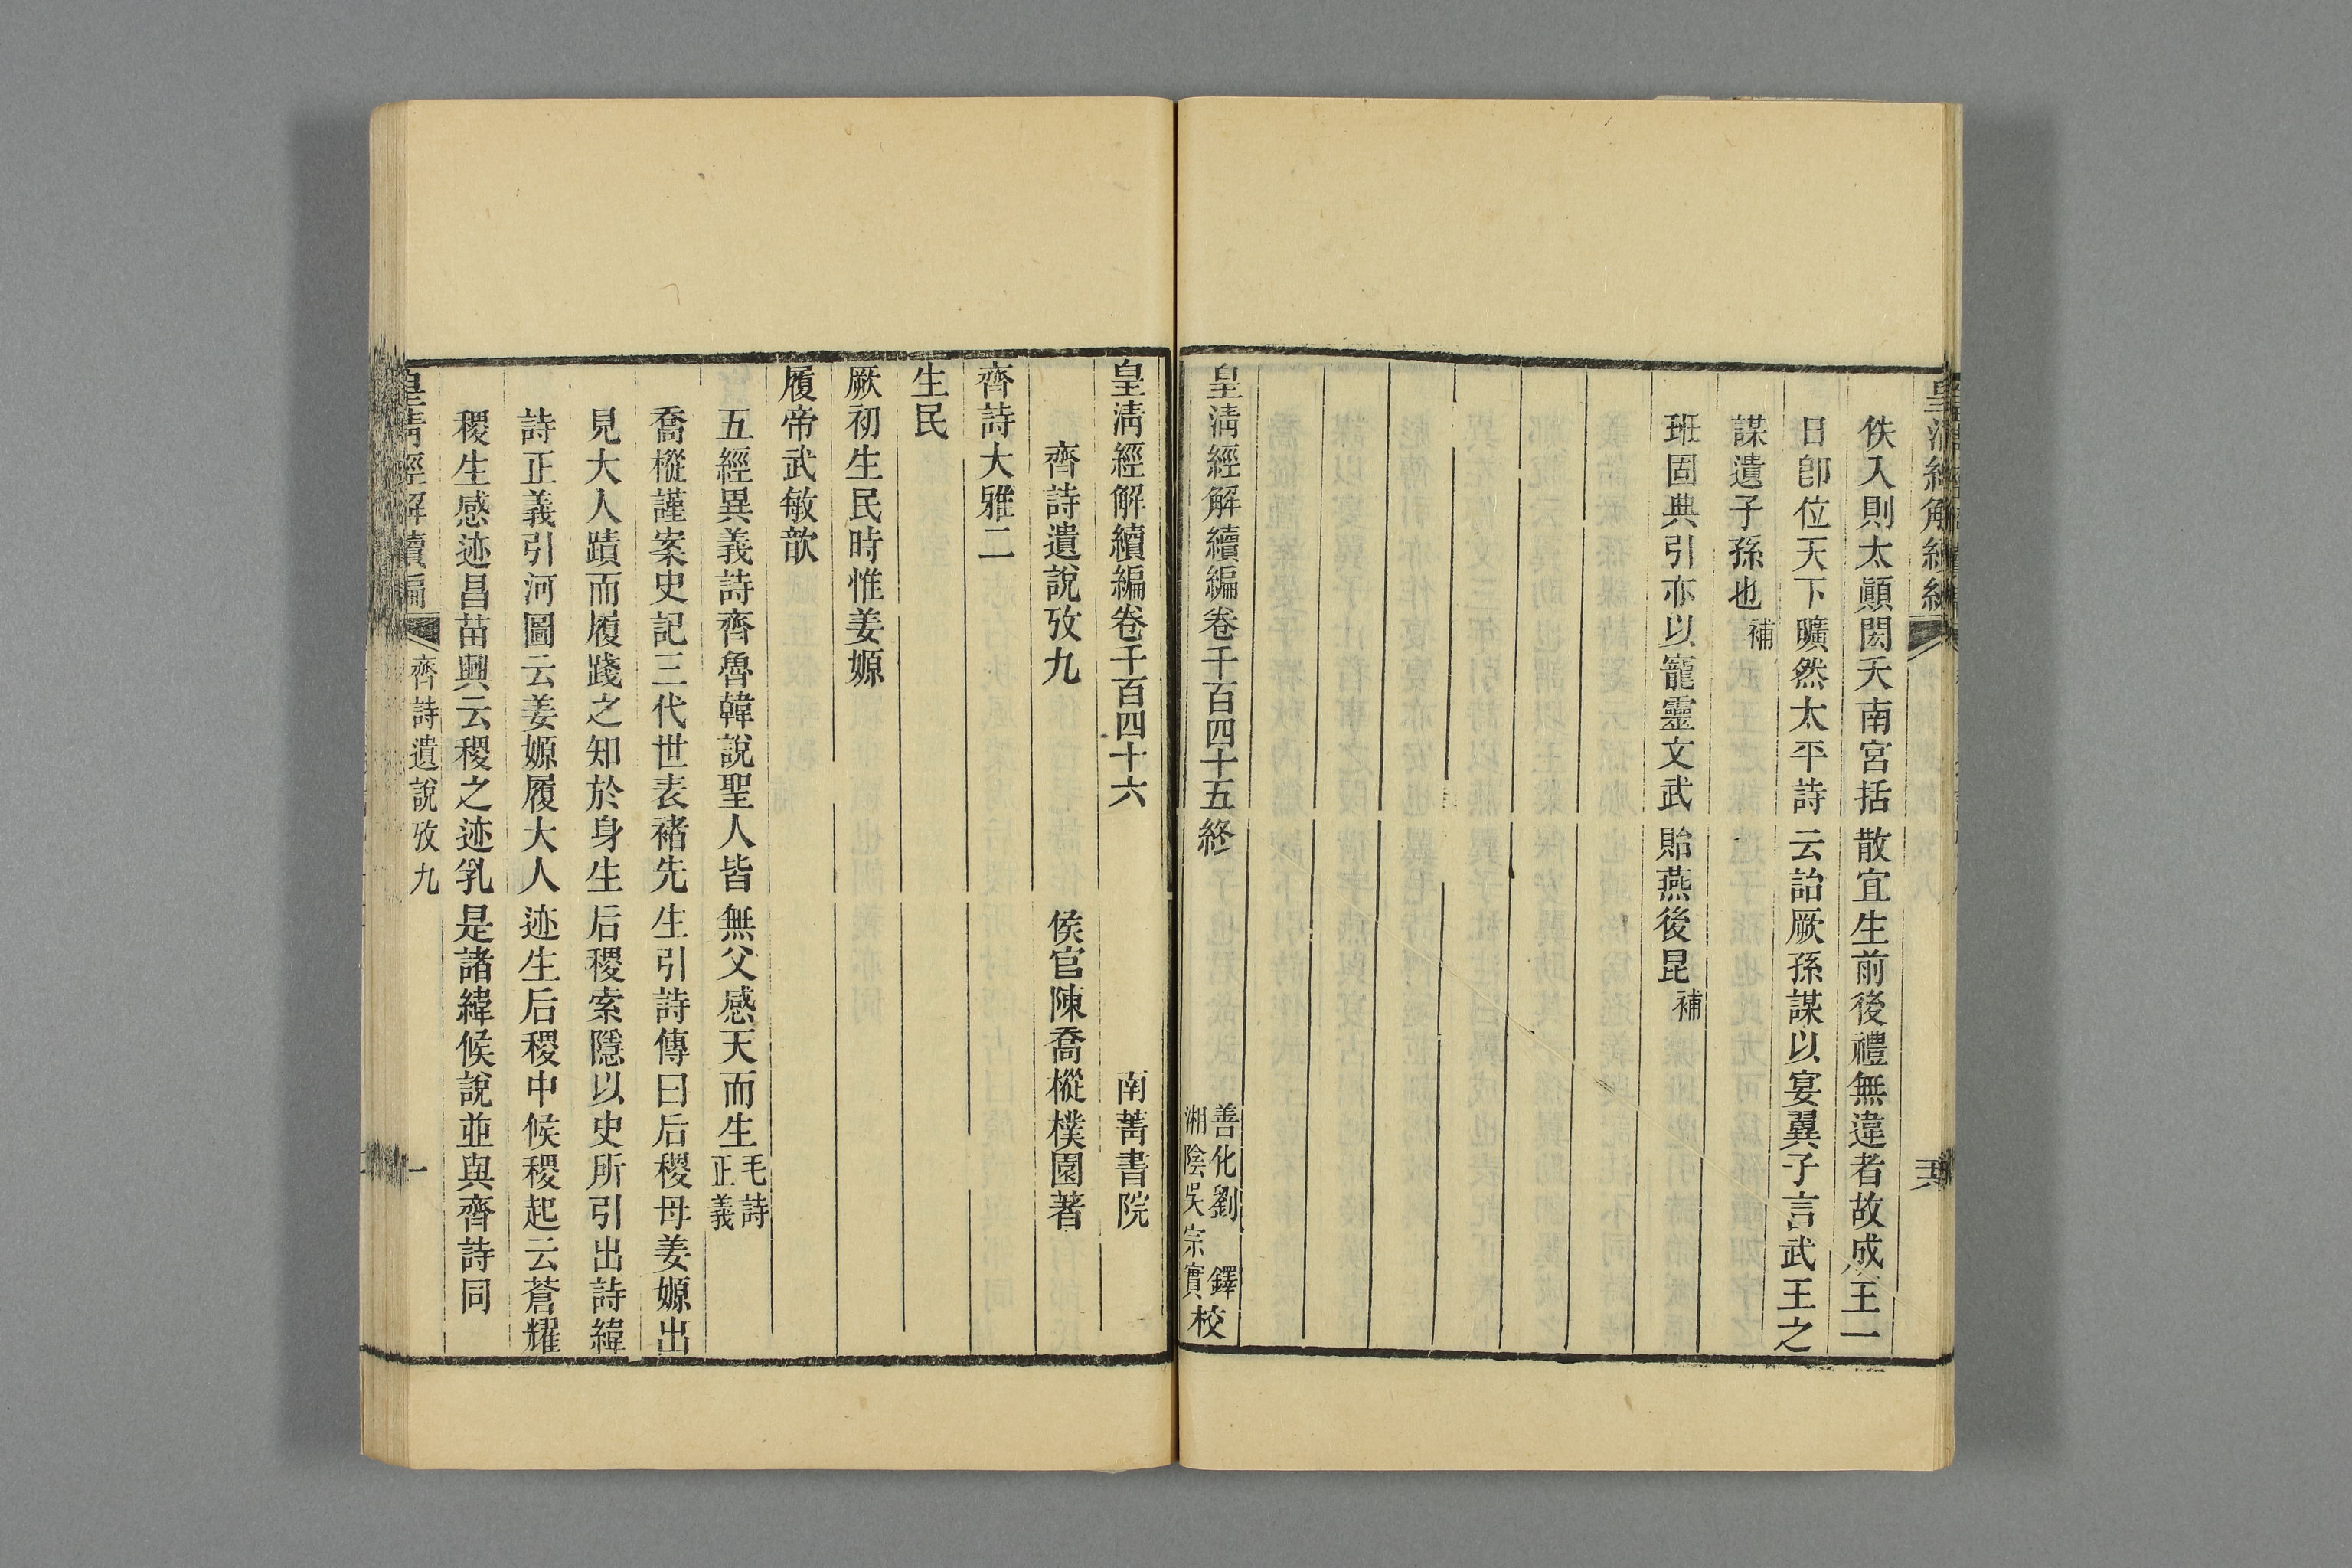 皇清經解續編
佚入則太顚閎夭南宮括散宜生前後禮無違者故成王一
日卽位天下曠然太平詩云詒厥孫謀以宴翼子言武王之
謀遺子孫也補
班固典引亦以寵靈文武貽燕後昆補
皇淸經解續編卷千百四十五終
善化劉鐸
湘陰吳宗實校
皇淸經解續編卷千百四十六
南菁書院
齊詩遺說攷九
侯官陳喬樅樸園著
齊詩大雅二
生民
厥初生民時惟姜嫄
履帝武敏歆
五經異義詩齊魯韓說聖人皆無父感天而生毛詩正義
喬樅謹案史記三代世表褚先生引詩傳曰后稷母姜嫄出
見大人蹟而履踐之知於身生后稷索隱以史所引出詩緯
詩正義引河圖云姜嫄履大人迹生后稷中候稷起云蒼耀
稷生感迹昌苗興云稷之迹乳是諸緯候說並與齊詩同
皇淸經解續編
齊詩遺說攷九
一